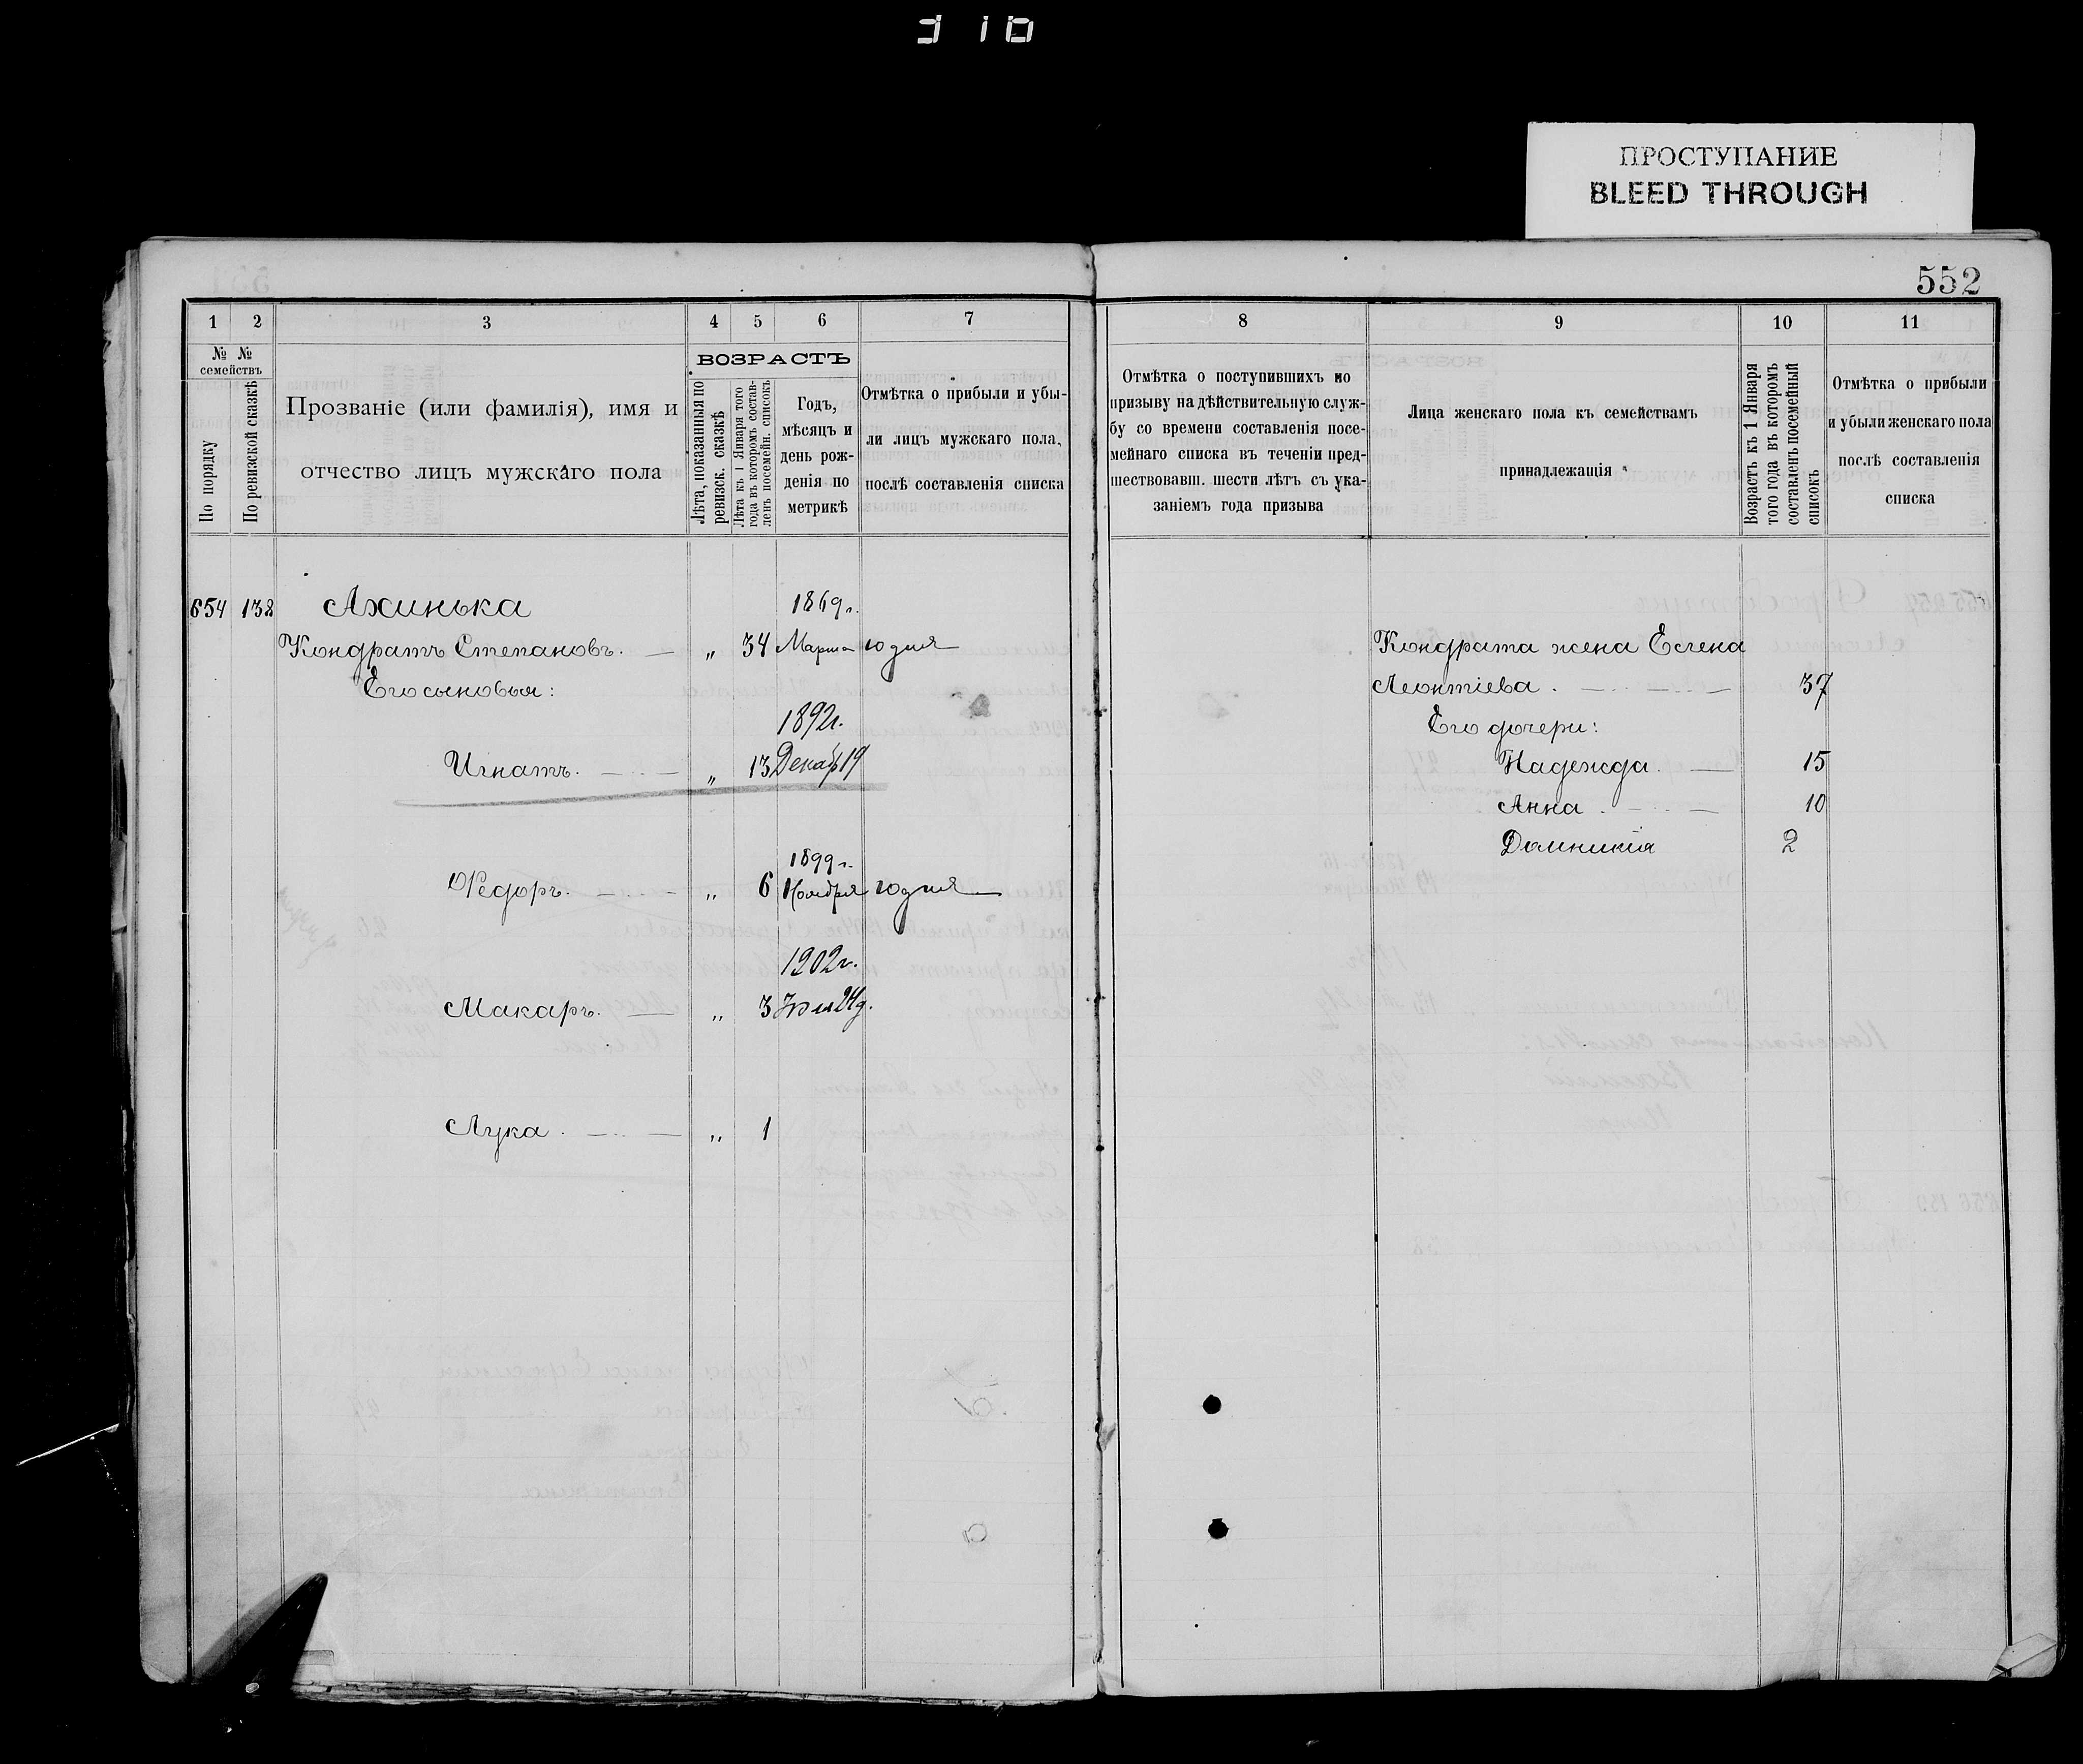 310
ПРОСТУПАНИЕ
BLEED THROUGH
552
1 2 3 4 5 6 7
№ № семействъ
По порядку
По ревизской сказкѣ
Прозваніе (или фамилія), имя и
отчество лицъ мужскаго пола
ВОЗРАСТЪ
Лѣта, показанныя по
ревизск. сказкѣ
Лѣта къ 1 Января того
года въ которомъ состав-
ленъ посемейн. списокъ
Годъ,
мѣсяцъ и
день рож-
денія по
метрикѣ
Отмѣтка о прибыли и убы-
ли лицъ мужскаго пола,
послѣ составленія списка
8 9 10 11
Отмѣтка о поступившихъ по
призыву на дѣйствительную служ-
бу со времени составленія посе-
мейнаго списка въ теченіи пред-
шествовавш. шести лѣтъ съ ука-
заніемъ года призыва
Лица женскаго пола къ семействамъ
принадлежащія
Возрастъ къ 1 Января
того года въ которомъ
составленъ посемейный
списокъ
Отмѣтка о прибыли
и убыли женскаго пола
послѣ составленія
списка
654 138 Ахинька 1869 г.
Кондратъ Степановъ. — „ 34 Марта 10 дня
Его сыновья:
1892 г.
Игнатъ. — „ 13 Декаб 19
1899 г.
Ѳедоръ. — „ 6 Ноября 10 дня
1902 г.
Макаръ. — „ 3
Лука. — „ 1
Кондрата жена Елена
Леонтіева. — 37
Его дочери:
Надежда. — 15
Анна. — 10
Домникія 2